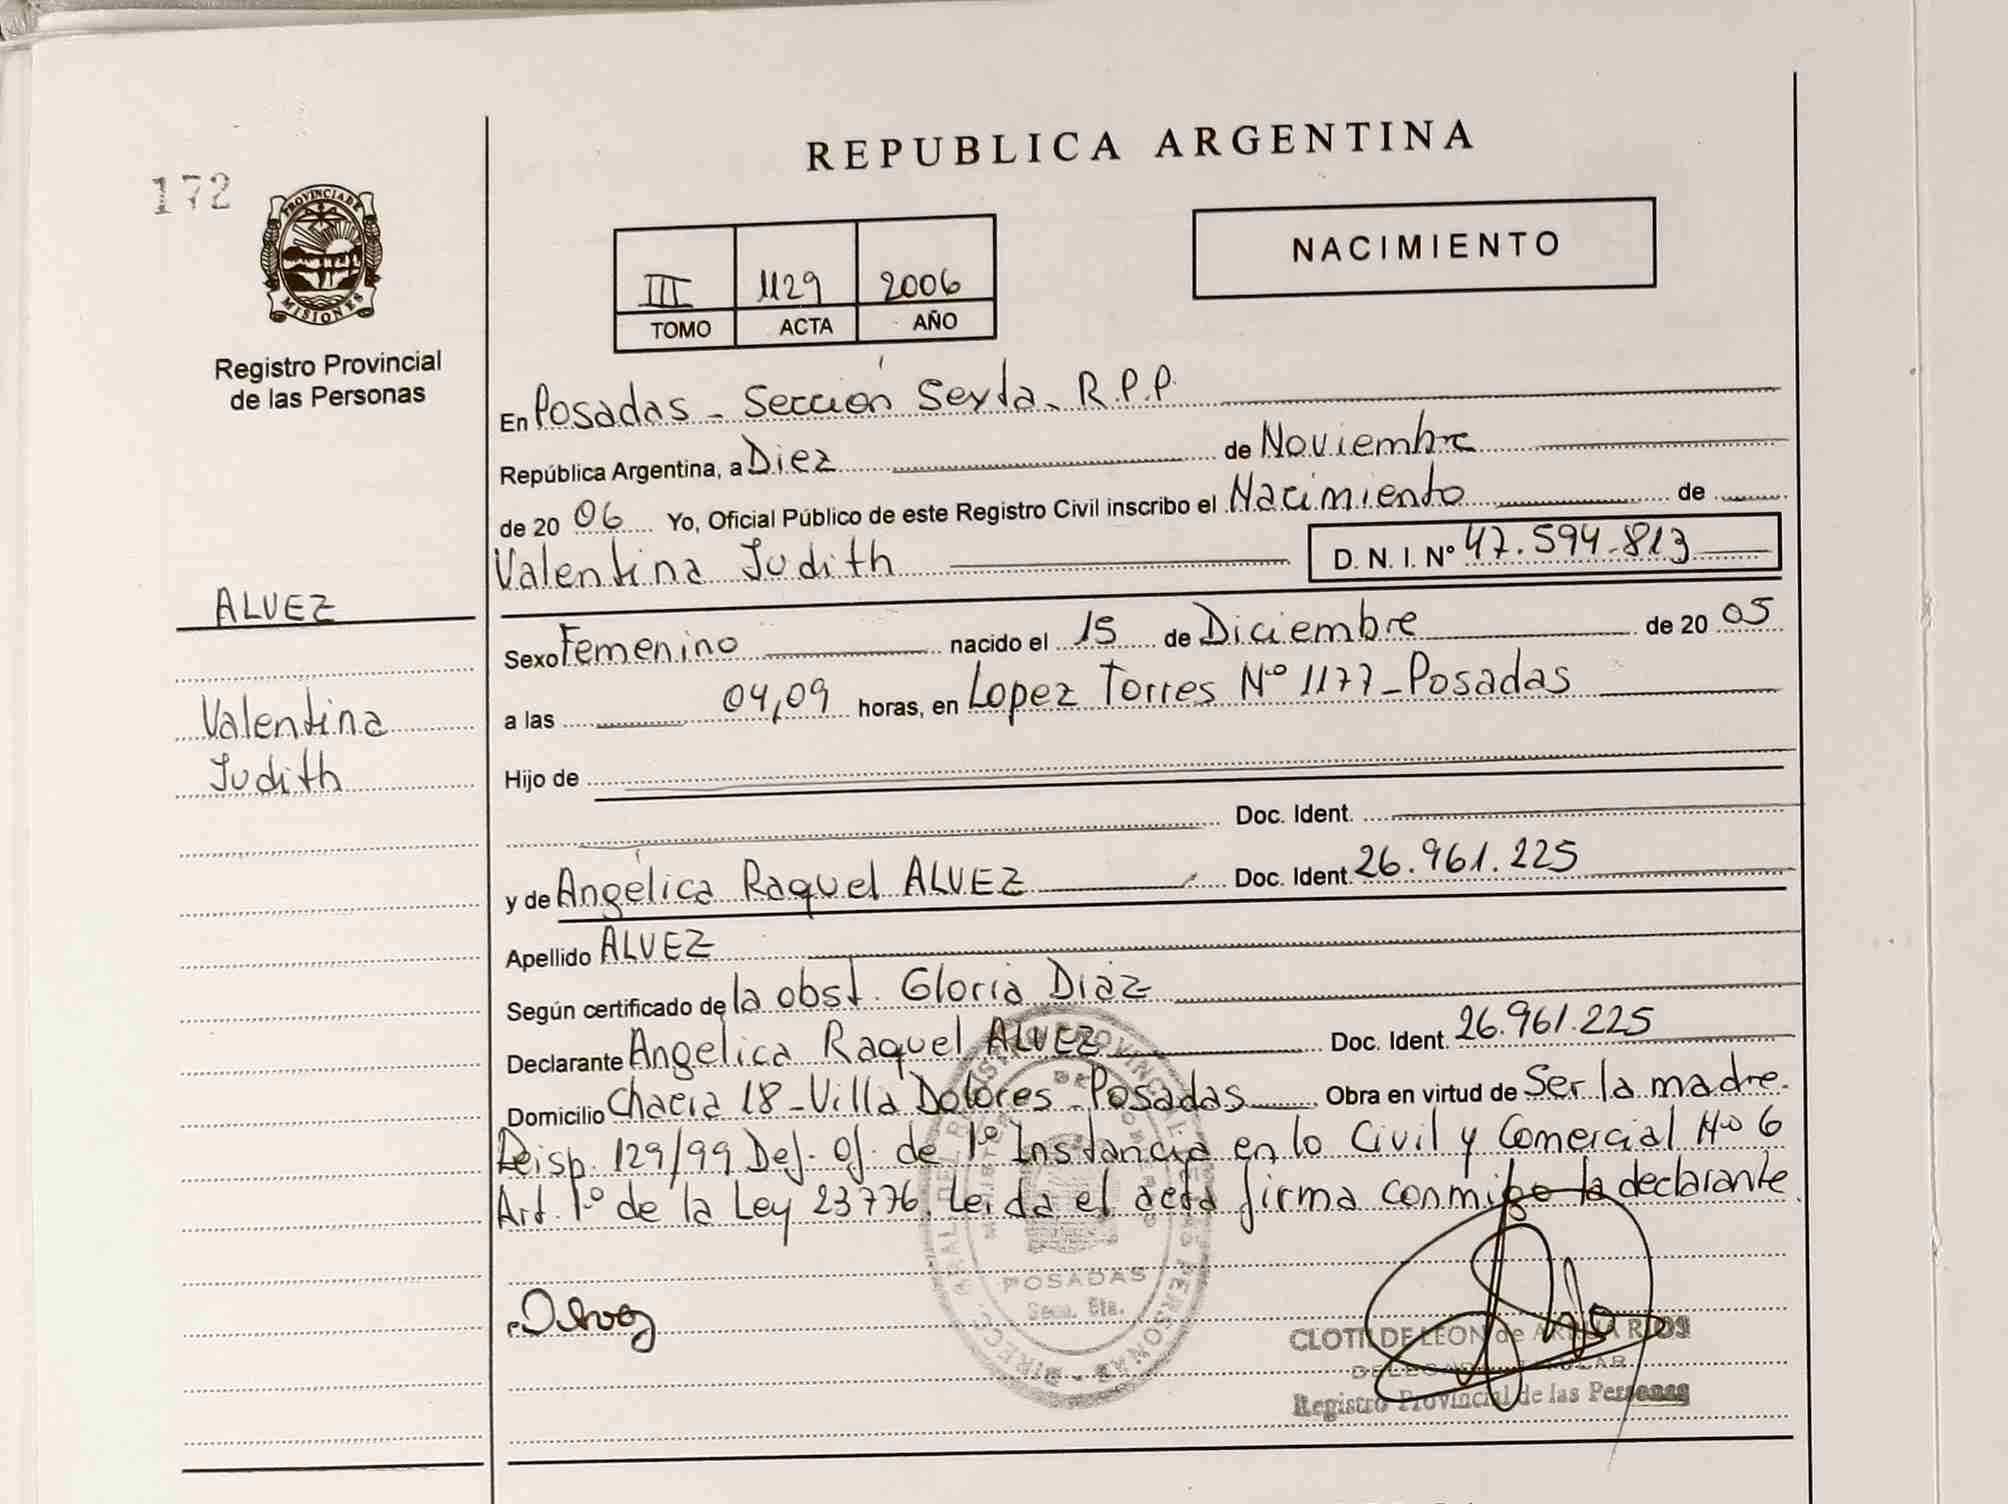 172
PROVINCIA DE
MISIONES
Registro Provincial
de las Personas
ALVEZ
Valentina
Judith
REPUBLICA ARGENTINA
III 1129 2006
TOMO ACTA AÑO
NACIMIENTO
En Posadas - Sección Sexta - R.P.P.
República Argentina, a Diez de Noviembre
de 2006 Yo, Oficial Público de este Registro Civil inscribo el Nacimiento de
Valentina Judith D. N. I. Nº 47.594.813
Sexo Femenino nacido el 15 de Diciembre de 2005
a las 04,09 horas, en Lopez Torres Nº 1177 - Posadas
Hijo de
Doc. Ident.
y de Angélica Raquel ALVEZ Doc. Ident. 26.961.225
Apellido ALVEZ
Según certificado de la obst. Gloria Diaz
Declarante Angelica Raquel ALVEZ Doc. Ident. 26.961.225
Domicilio Chacra 18 - Villa Dolores - Posadas Obra en virtud de Ser la madre.
Disp. 129/99 Def. Of. de 1º Instancia en lo Civil y Comercial Nº 6
Art. 1º de la Ley 23776. Leida el acta firma conmigo la declarante.
POSADAS
Secc. 6ta.
CLOTILDE LEON de
Registro Provincial de las Personas